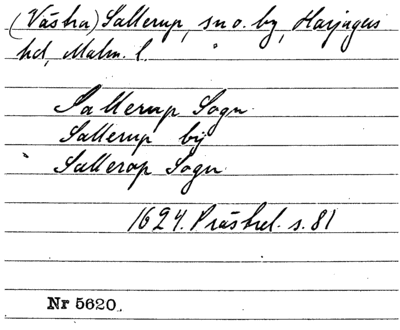 (Västra) Sallerup, sn o. by, Harjagers
hd, Malm. l.
Sallerup Sogn
Sallerup by
Sallerop Sogn
1624. Präsrel. s. 81
Nr 5620.